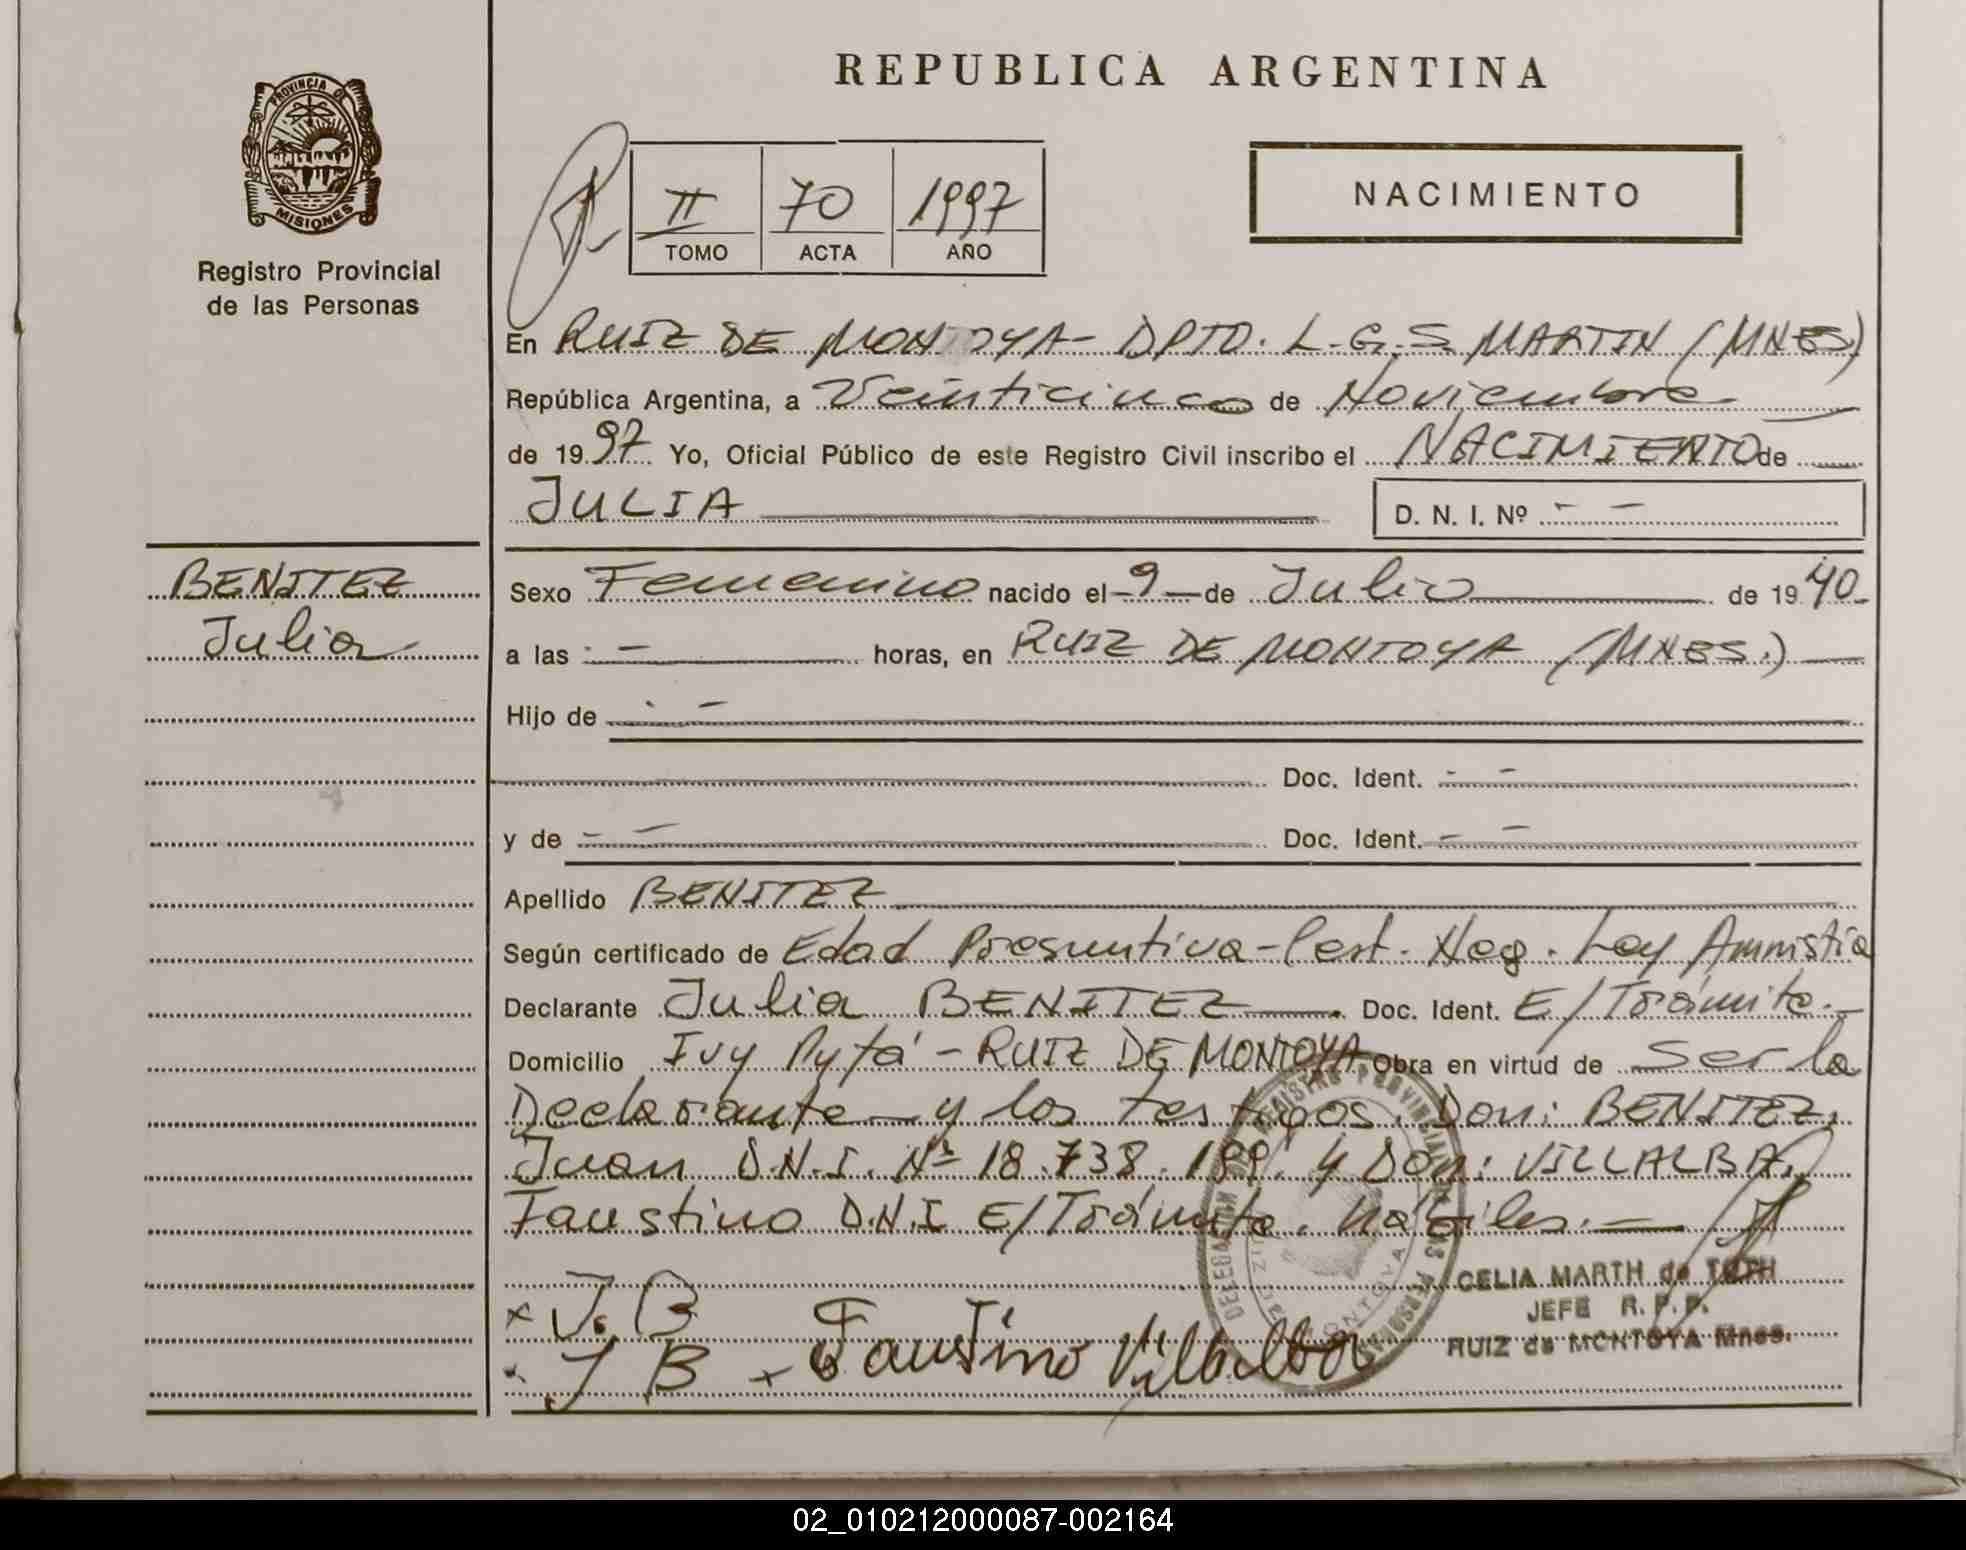 REPUBLICA ARGENTINA
PROVINCIA DE
MISIONES
Registro Provincial
de las Personas
II 70 1997
TOMO ACTA AÑO
NACIMIENTO
En RUIZ DE MONTOYA- DPTO. L.G.S. MARTIN (MNES)
República Argentina, a Veinticinco de Noviembre
de 1997 Yo, Oficial Público de este Registro Civil inscribo el NACIMIENTO de
JULIA D. N. I. Nº - -
BENITEZ
Julia
Sexo Femenino nacido el -9- de Julio de 1940.
a las - - horas, en RUIZ DE MONTOYA (MNES.)
Hijo de - -
Doc. Ident. - -
y de - - Doc. Ident. - -
Apellido BENITEZ
Según certificado de Edad Presuntiva - Cert. Neg. Ley Amnistia
Declarante Julia BENITEZ . Doc. Ident. E/Trámite.-
Domicilio Ivy Pytá - RUIZ DE MONTOYA Obra en virtud de Ser la
Declarante y los testigos. Don: BENITEZ,
Juan D.N.I. Nº 18.738.199. y Don: VILLALBA,
Faustino D.N.I E/Trámite. hábiles.-
CELIA MARTH de TOTH
JEFE R. P. P.
RUIZ de MONTOYA Mnes.
x J. B
J B x Faustino Villalba
02_010212000087-002164